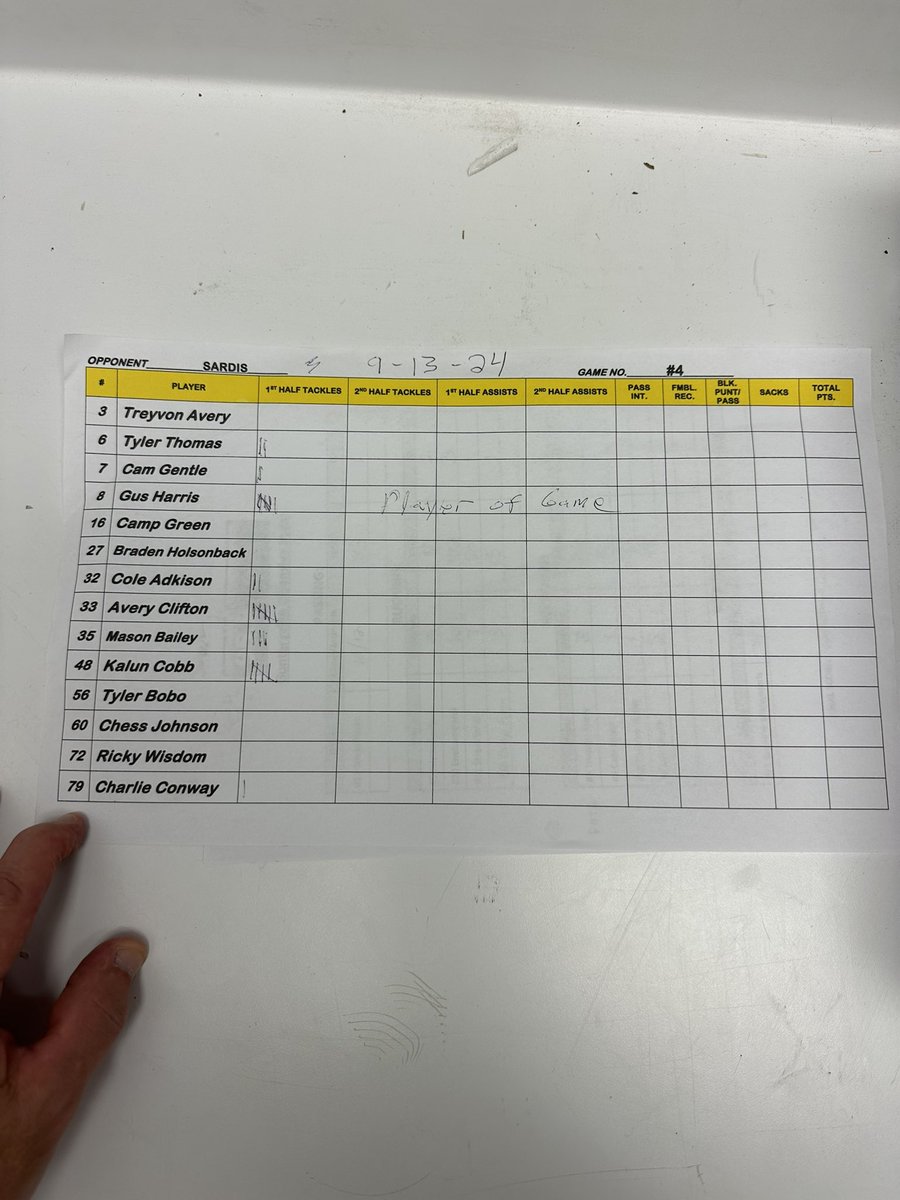 OPPONENT SARDIS 9-13-24 GAME NO. #4
# PLAYER 1ST HALF TACKLES 2ND HALF TACKLES 1ST HALF ASSISTS 2ND HALF ASSISTS PASS INT. FMBL. REC. BLK. PUNT/ PASS SACKS TOTAL PTS.
3 Treyvon Avery
6 Tyler Thomas
7 Cam Gentle
8 Gus Harris Player of Game
16 Camp Green
27 Braden Holsonback
32 Cole Adkison
33 Avery Clifton
35 Mason Bailey
48 Kalun Cobb
56 Tyler Bobo
60 Chess Johnson
72 Ricky Wisdom
79 Charlie Conway